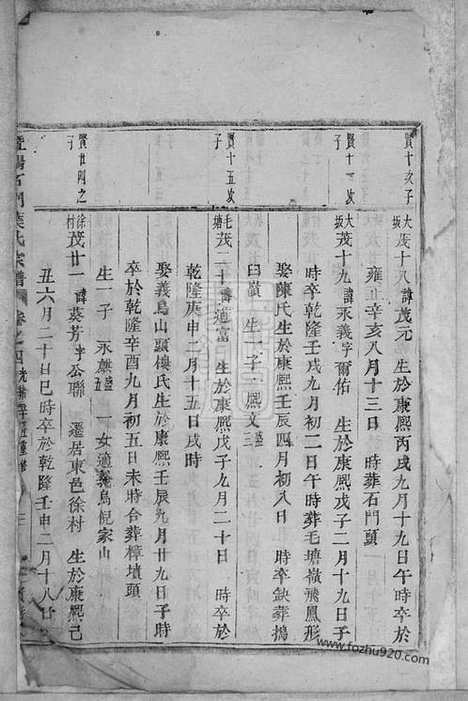 賢十次子
大坂
茂十八諱茂元 生於康熙丙戌九月十九日午時卒於
雍正辛亥八月十三日 時葬石門頭
賢十一次子
大坂
茂十九諱永義字爾佑 生於康熙戊子二月十九日子
時卒乾隆壬戌九月初二日午時葬毛塘嶺飛鳳形
娶陳氏生於康熙壬辰四月初八日 時卒缺葬搗
臼嶺 生一子 熙文
賢十五次子
毛塘
茂二十諱適富 生於康熙戊子九月二十日 時卒於
乾隆庚申二月十五日戌時
娶義烏山頭樓氏生於康熙壬辰九月廿九日子時
卒於乾隆辛酉九月初五日未時合葬樟墳頭
生一子 永 一女適義烏倪家山
賢廿則之
徐村
茂廿一諱葵芳字公聯 遷居東邑徐村 生於康熙己
丑六月二十日巳時卒於乾隆壬申二月十八日
石門葉氏宗譜 卷之四
www.fozhu920.com